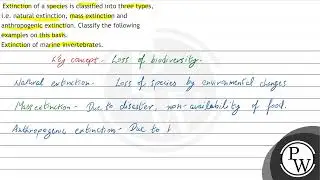 Extinction of a species is classified into three types,
i.e. natural extinction, mass extinction and
anthropogenic extinction. Classify the following
examples on this basis.
Extinction of marine invertebrates.
Key concept - Loss of biodiversity.
Natural extinction - Loss of species by environmental changes
Mass extinction - Due to disaster, non-availability of food.
Anthropogenic extinction - Due to
P
W